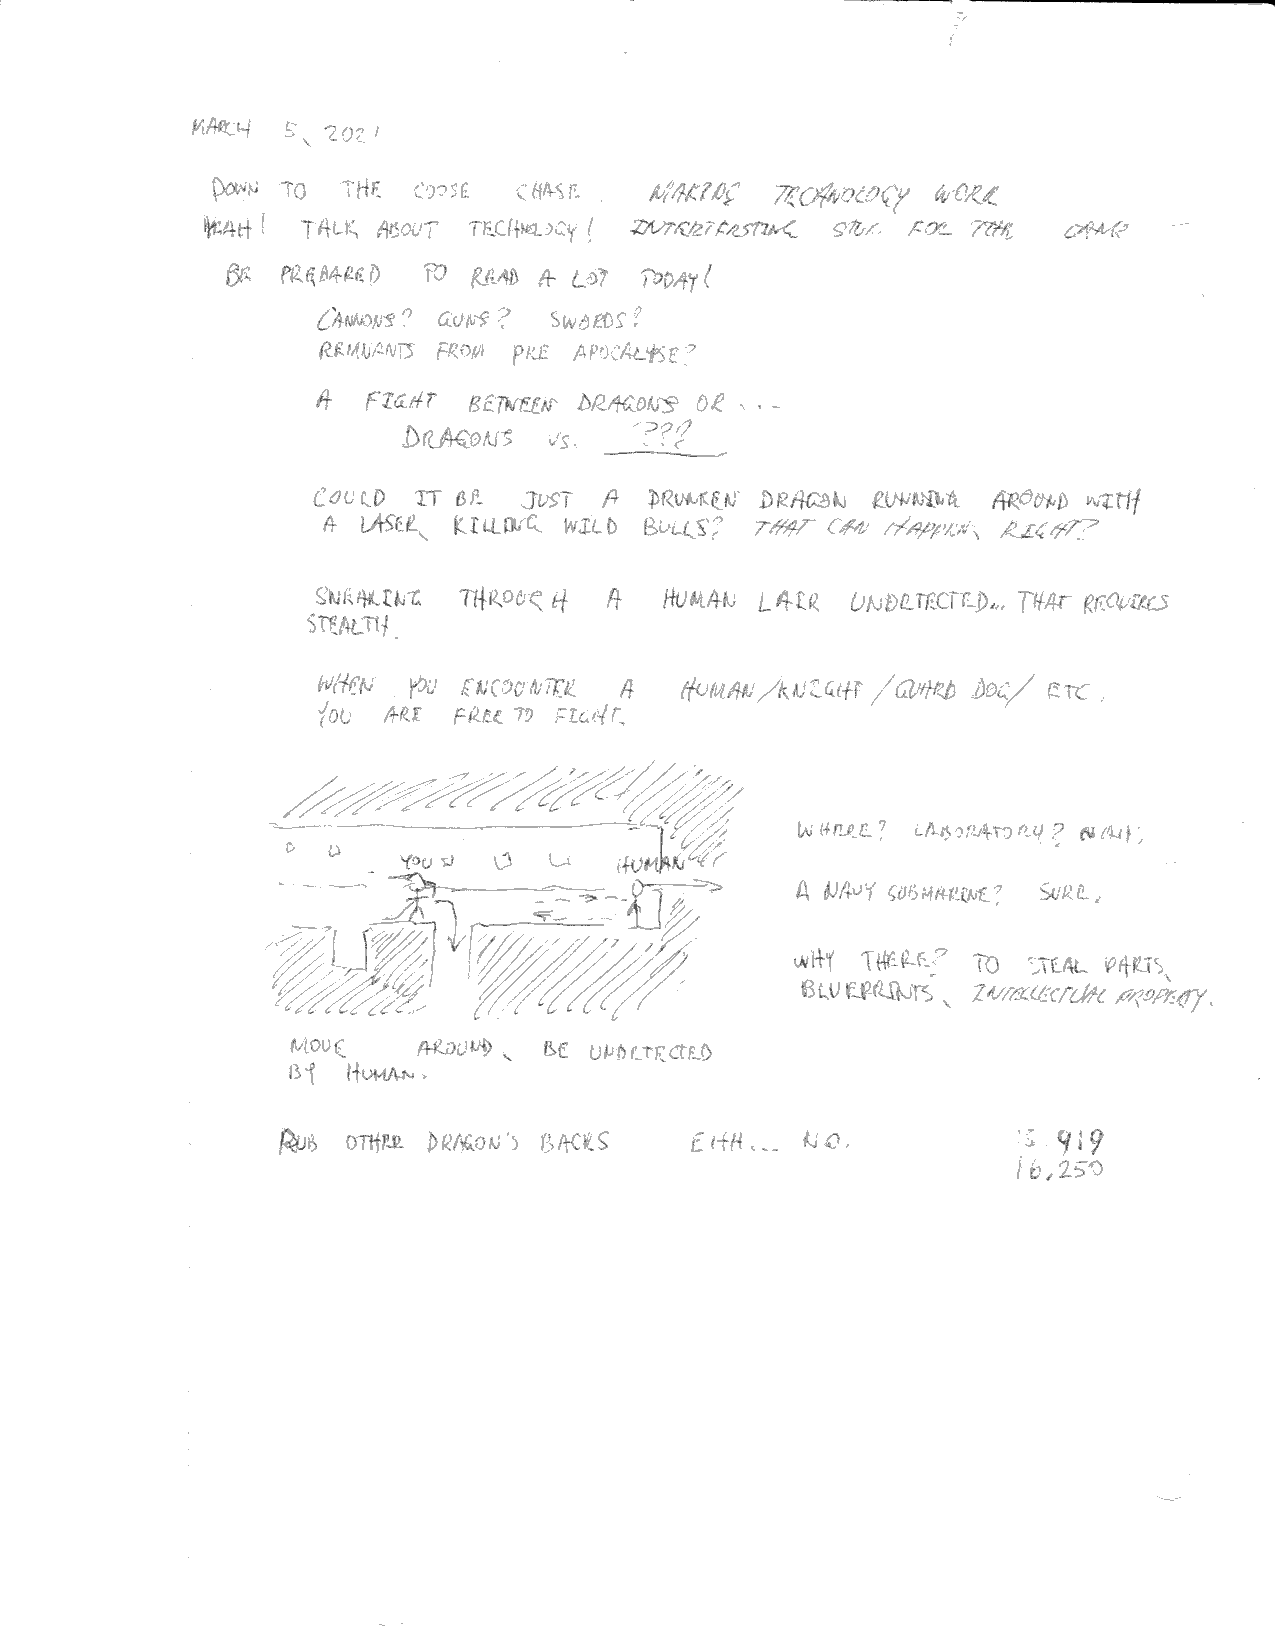 MARCH 5, 2021
DOWN TO THE GOOSE CHASE. MAKING TECHNOLOGY WORK
YEAH! TALK ABOUT TECHNOLOGY! INTERESTING FOR THE GAME
BE PREPARED TO READ A LOT TODAY!
CANNONS? GUNS? SWORDS?
REMNANTS FROM PRE APOCALYPSE?
A FIGHT BETWEEN DRAGONS OR ...
DRAGONS vs. ???
COULD IT BE JUST A DRUNKEN DRAGON RUNNING AROUND WITH
A LASER, KILLING WILD BULLS? THAT CAN HAPPEN, RIGHT?
SNEAKING THROUGH A HUMAN LAIR UNDETECTED... THAT REQUIRES
STEALTH.
WHEN YOU ENCOUNTER A HUMAN/KNIGHT/GUARD DOG/ ETC.
YOU ARE FREE TO FIGHT.
YOU
HUMAN
WHERE? LABORATORY?
A NAVY SUBMARINE? SURE.
WHY THERE? TO STEAL PARTS,
BLUEPRINTS, INTELLECTUAL PROPERTY.
MOVE AROUND, BE UNDETECTED
BY HUMAN.
RUB OTHER DRAGON'S BACKS EHH... NO.
919
16,250